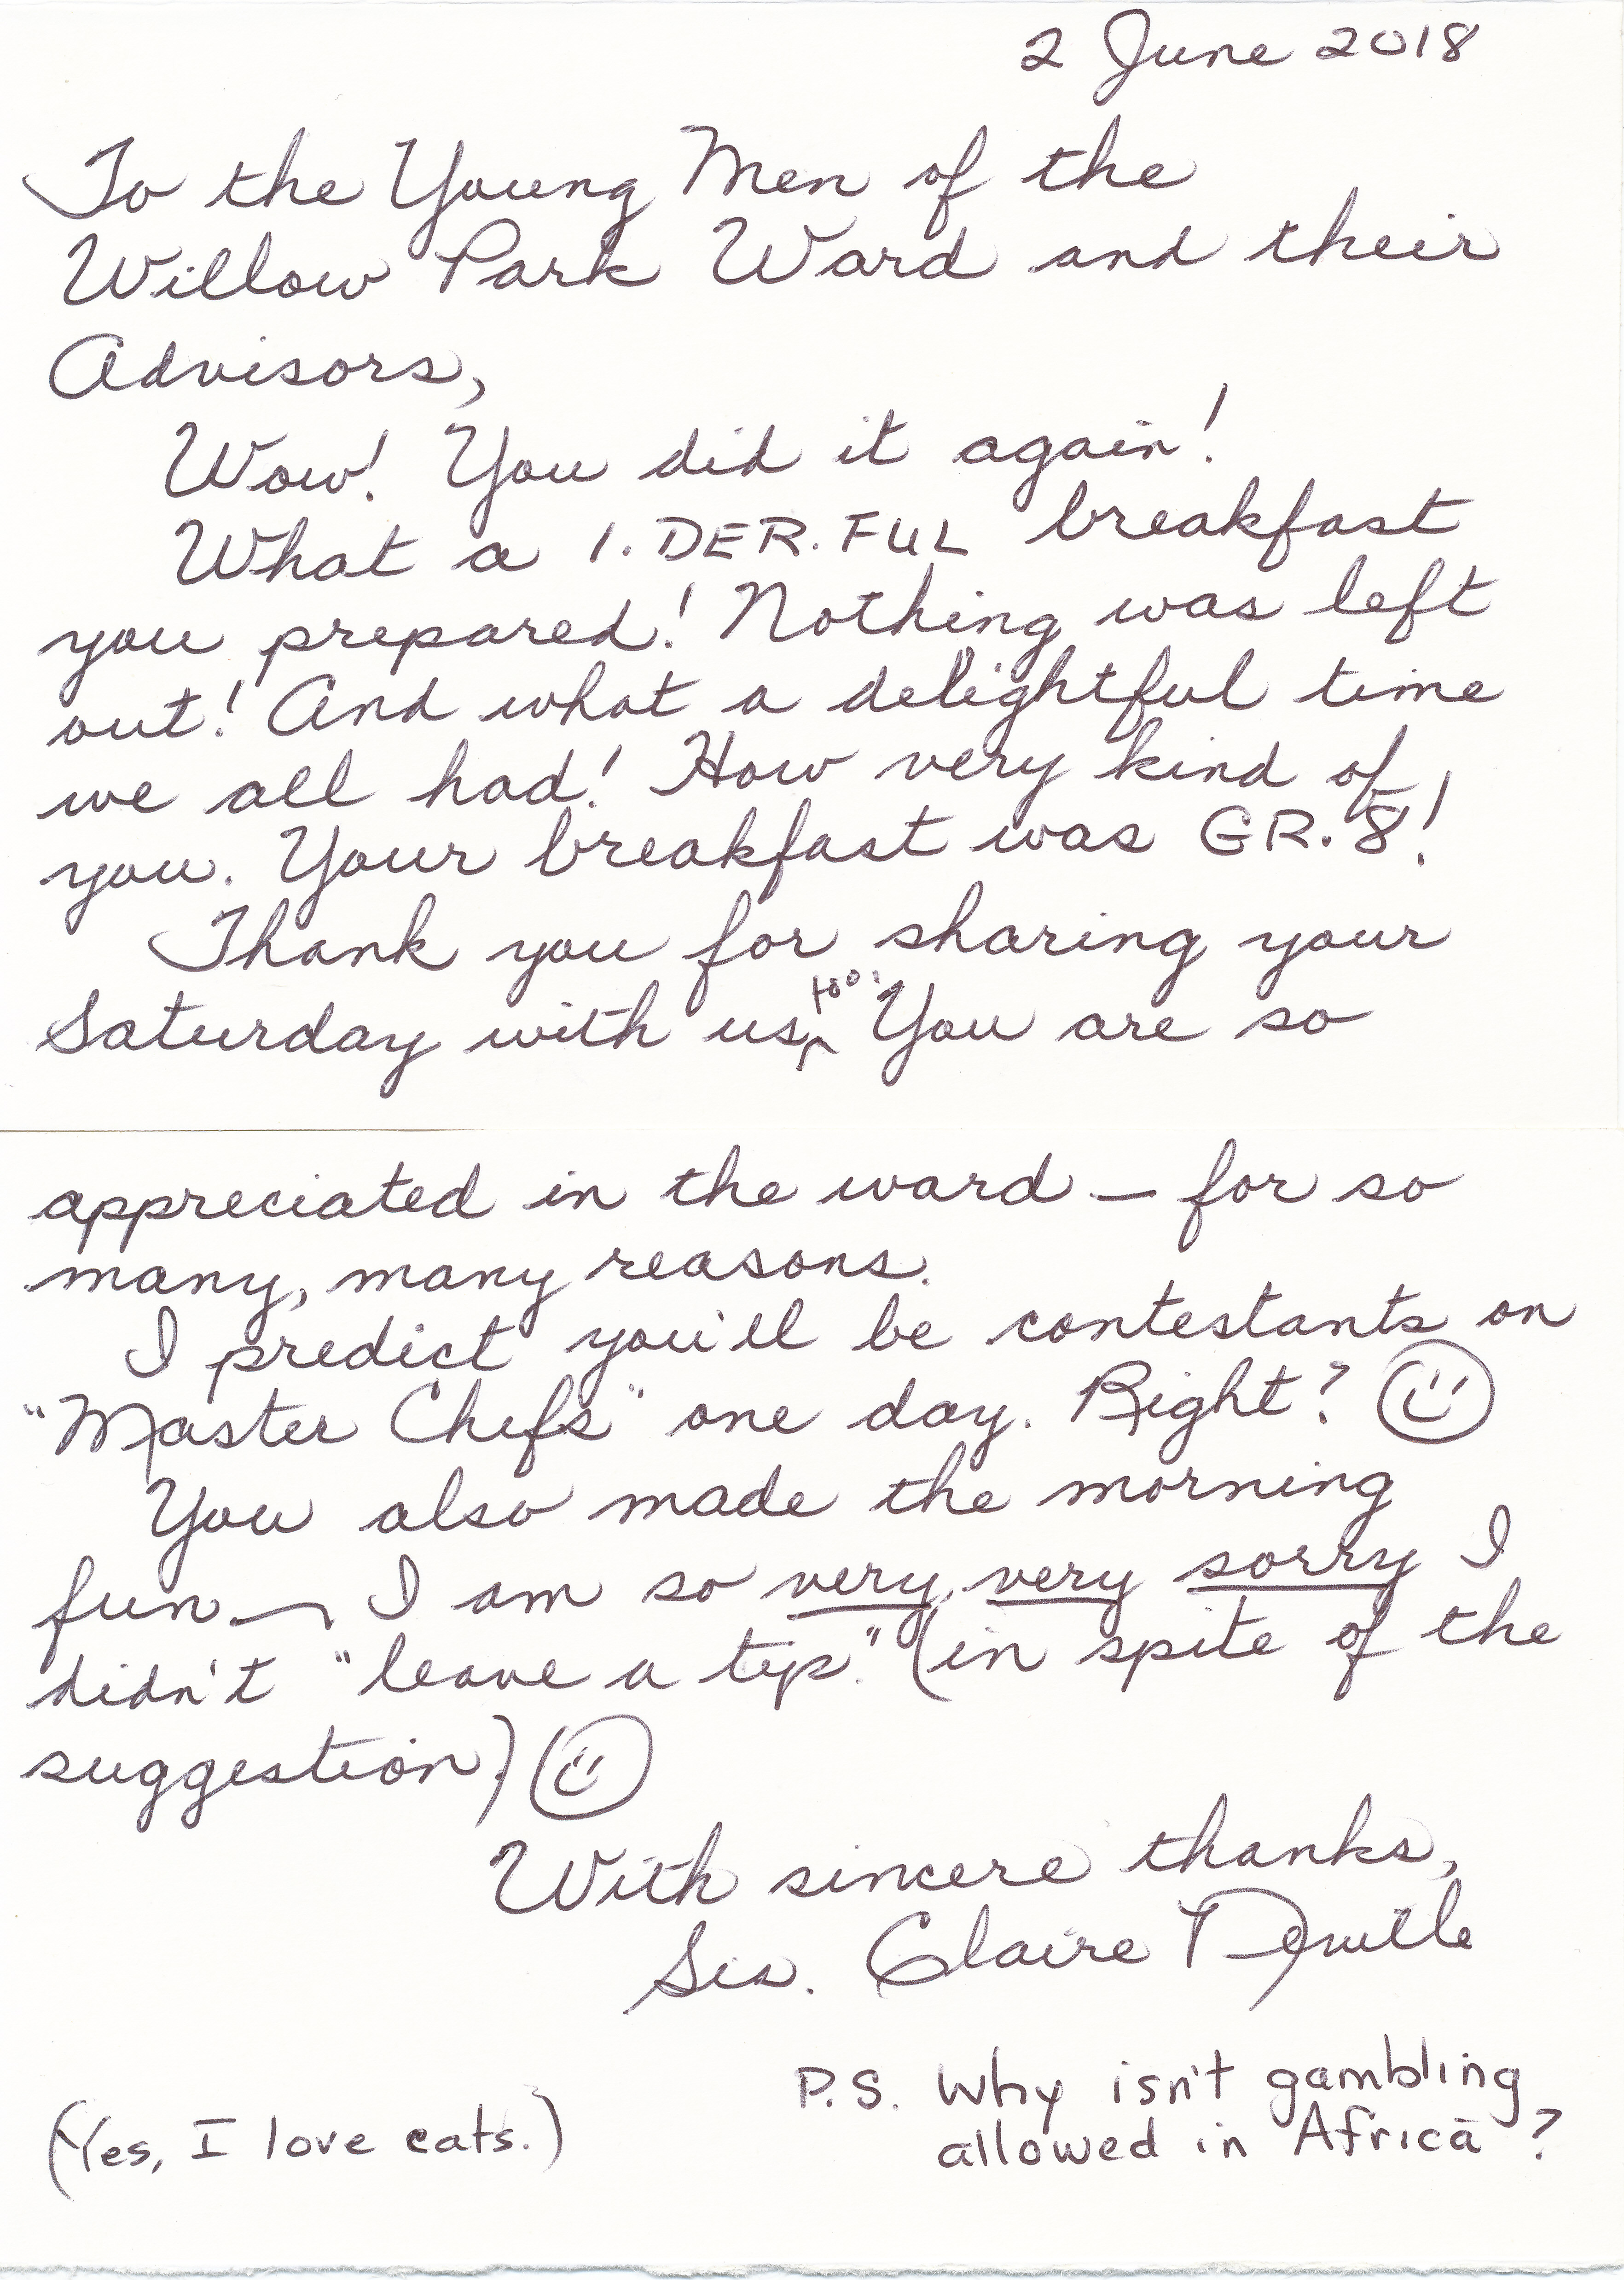 2 June 2018
To the Young Men of the
Willow Park Ward and their
Advisors,
Wow! You did it again!
What a 1.DER.FUL breakfast
you prepared! Nothing was left
out! And what a delightful time
we all had! How very kind of
you. Your breakfast was GR.8!
Thank you for sharing your
Saturday with us, too. You are so
appreciated in the ward – for so
many, many reasons.
I predict you'll be contestants on
"Master Chefs" one day. Right?
You also made the morning
fun – I am so very, very sorry I
didn't "leave a tip." (in spite of the
suggestion)
With sincere thanks,
Sis. Claire
P.S. Why isn't gambling
allowed in Africa?
(Yes, I love cats.)